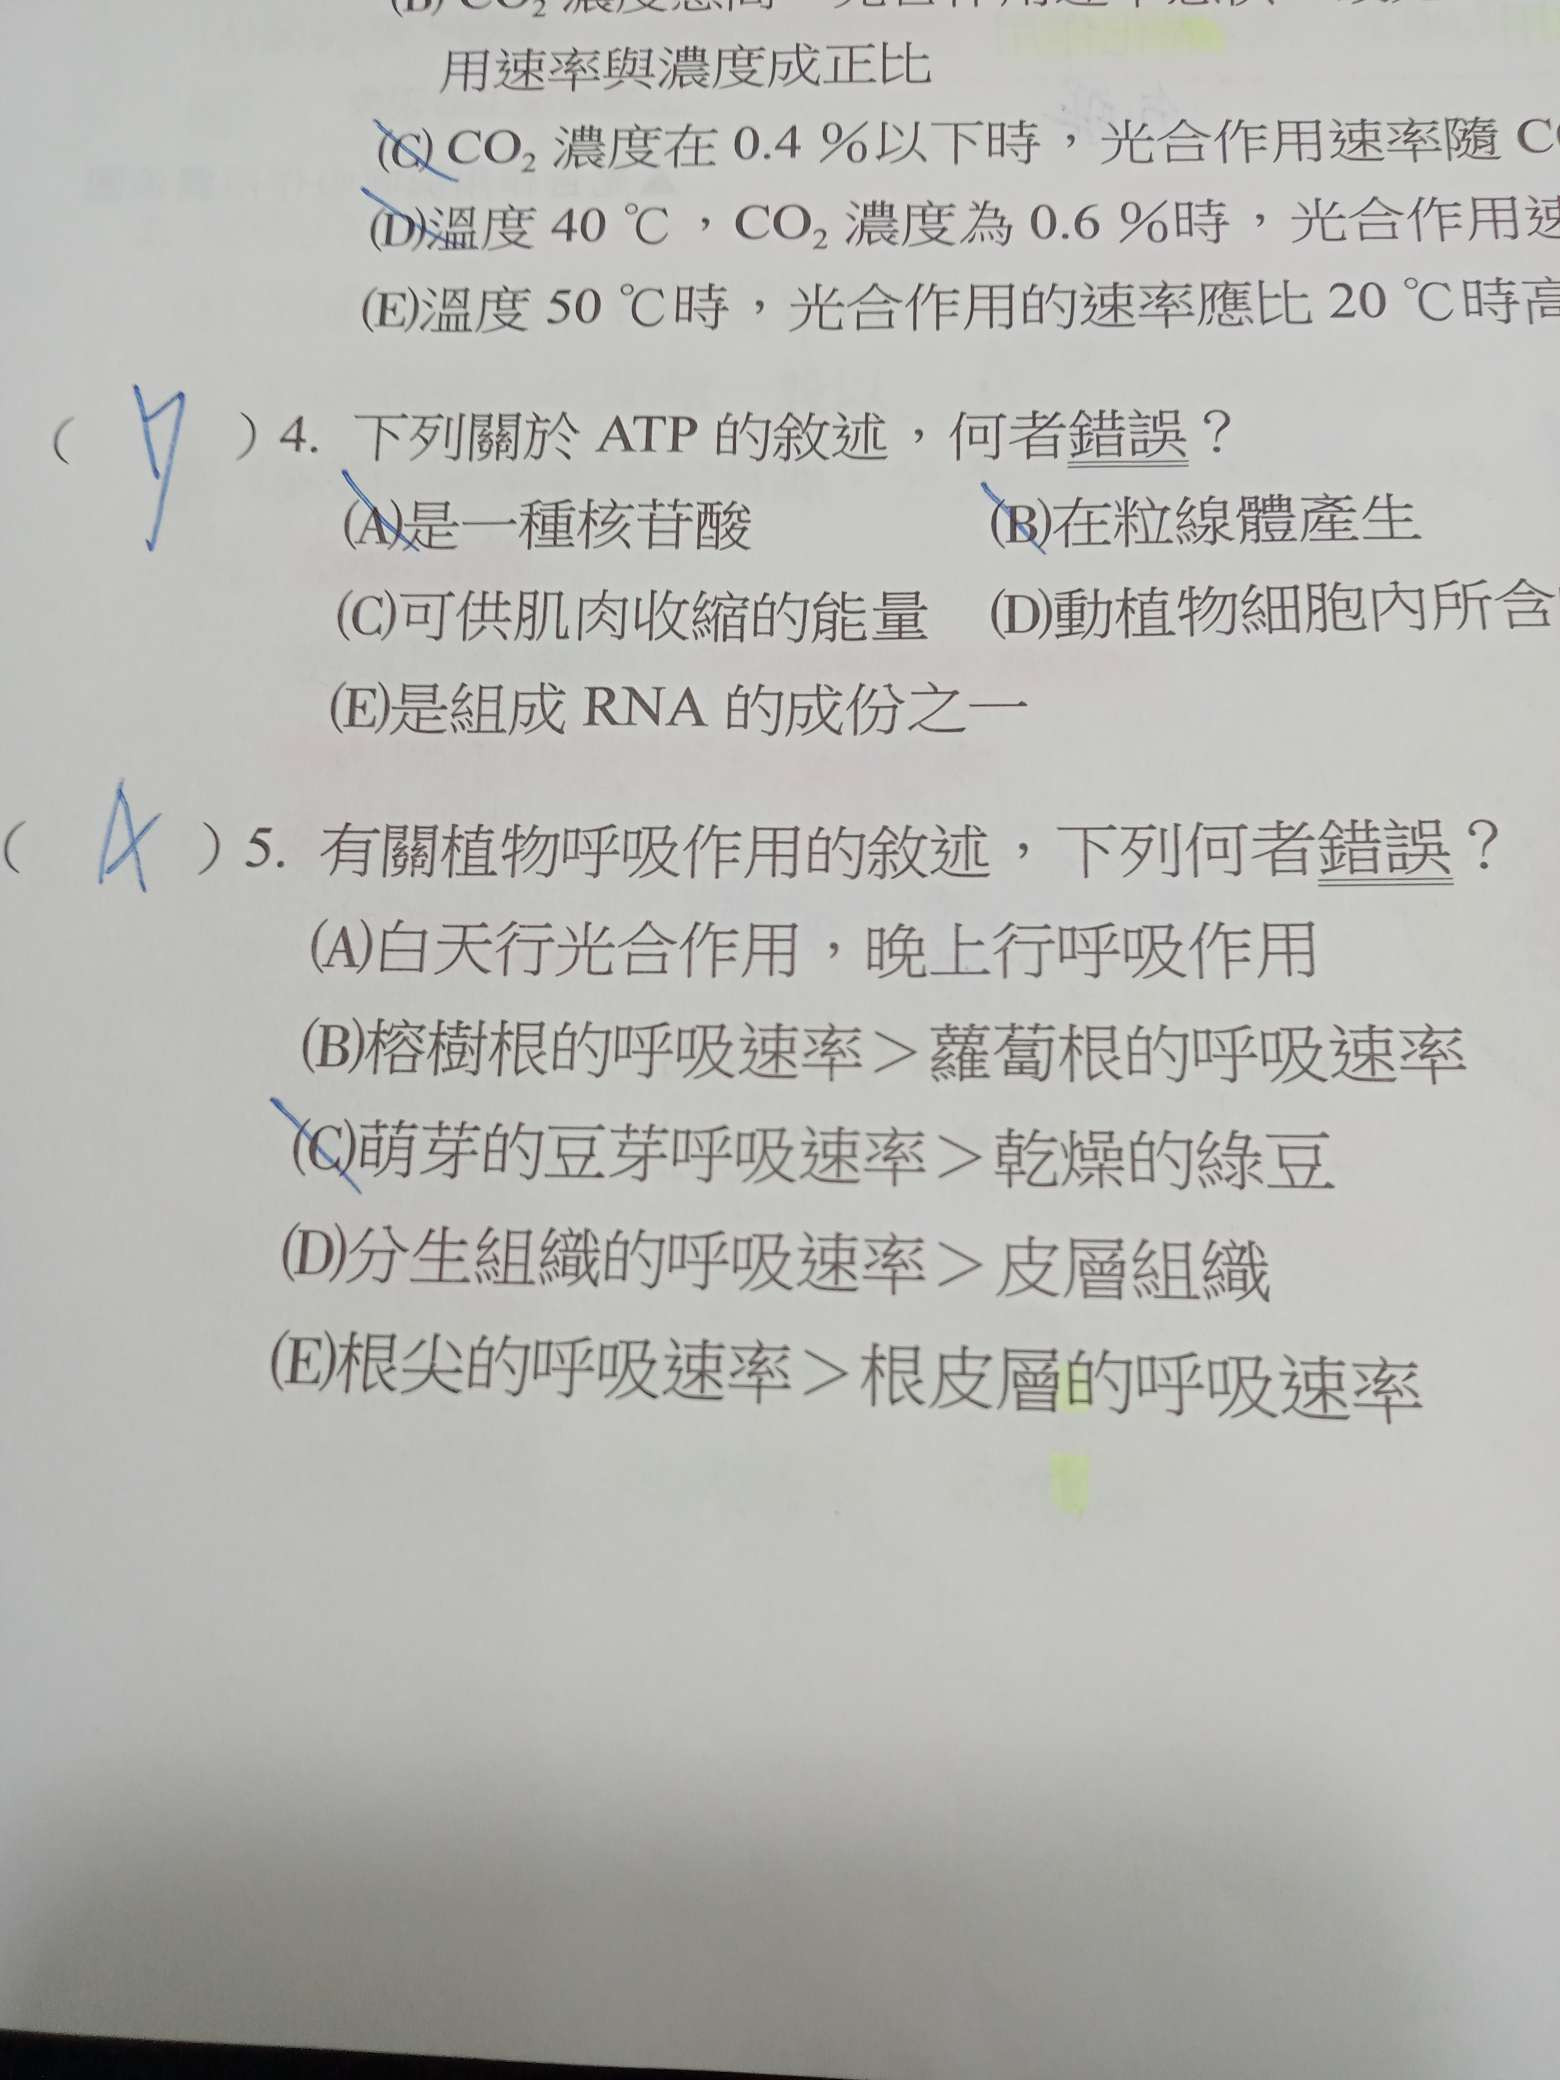 用速率與濃度成正比
(C) CO₂ 濃度在 0.4 %以下時，光合作用速率隨 C
(D)溫度 40 ℃，CO₂ 濃度為 0.6 %時，光合作用速
(E)溫度 50 ℃時，光合作用的速率應比 20 ℃時高
( )4. 下列關於 ATP 的敘述，何者錯誤？
(A)是一種核苷酸 (B)在粒線體產生
(C)可供肌肉收縮的能量 (D)動植物細胞內所含
(E)是組成 RNA 的成份之一
( A )5. 有關植物呼吸作用的敘述，下列何者錯誤？
(A)白天行光合作用，晚上行呼吸作用
(B)榕樹根的呼吸速率＞蘿蔔根的呼吸速率
(C)萌芽的豆芽呼吸速率＞乾燥的綠豆
(D)分生組織的呼吸速率＞皮層組織
(E)根尖的呼吸速率＞根皮層的呼吸速率